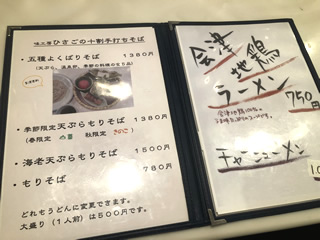 味工房 ひさごの十割手打ちそば
・五種よくばりそば 1380円
・季節限定天ぷらもりそば 1380円
(春限定 山菜 秋限定 きのこ)
・海老天ぷらもりそば 1500円
・もりそば 780円
どれもうどんに変更できます。
大盛り(1人前)は500円です。
会津
地鶏
ラーメン
750円
チャーシューメン